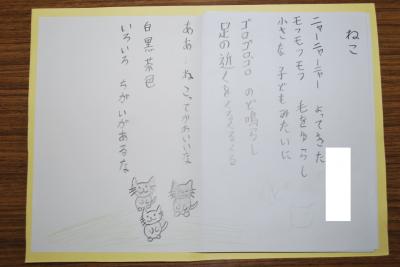 ねこ
ニャーニャーニャー よってきた
モフモフモフ 毛をゆらし
小さな 子どもみたいに
ゴロゴロゴロ のど鳴らし
足の近くをくるくるくる
ああ…ねこってかわいいな
白黒茶色
いろいろ ちがいがあるな